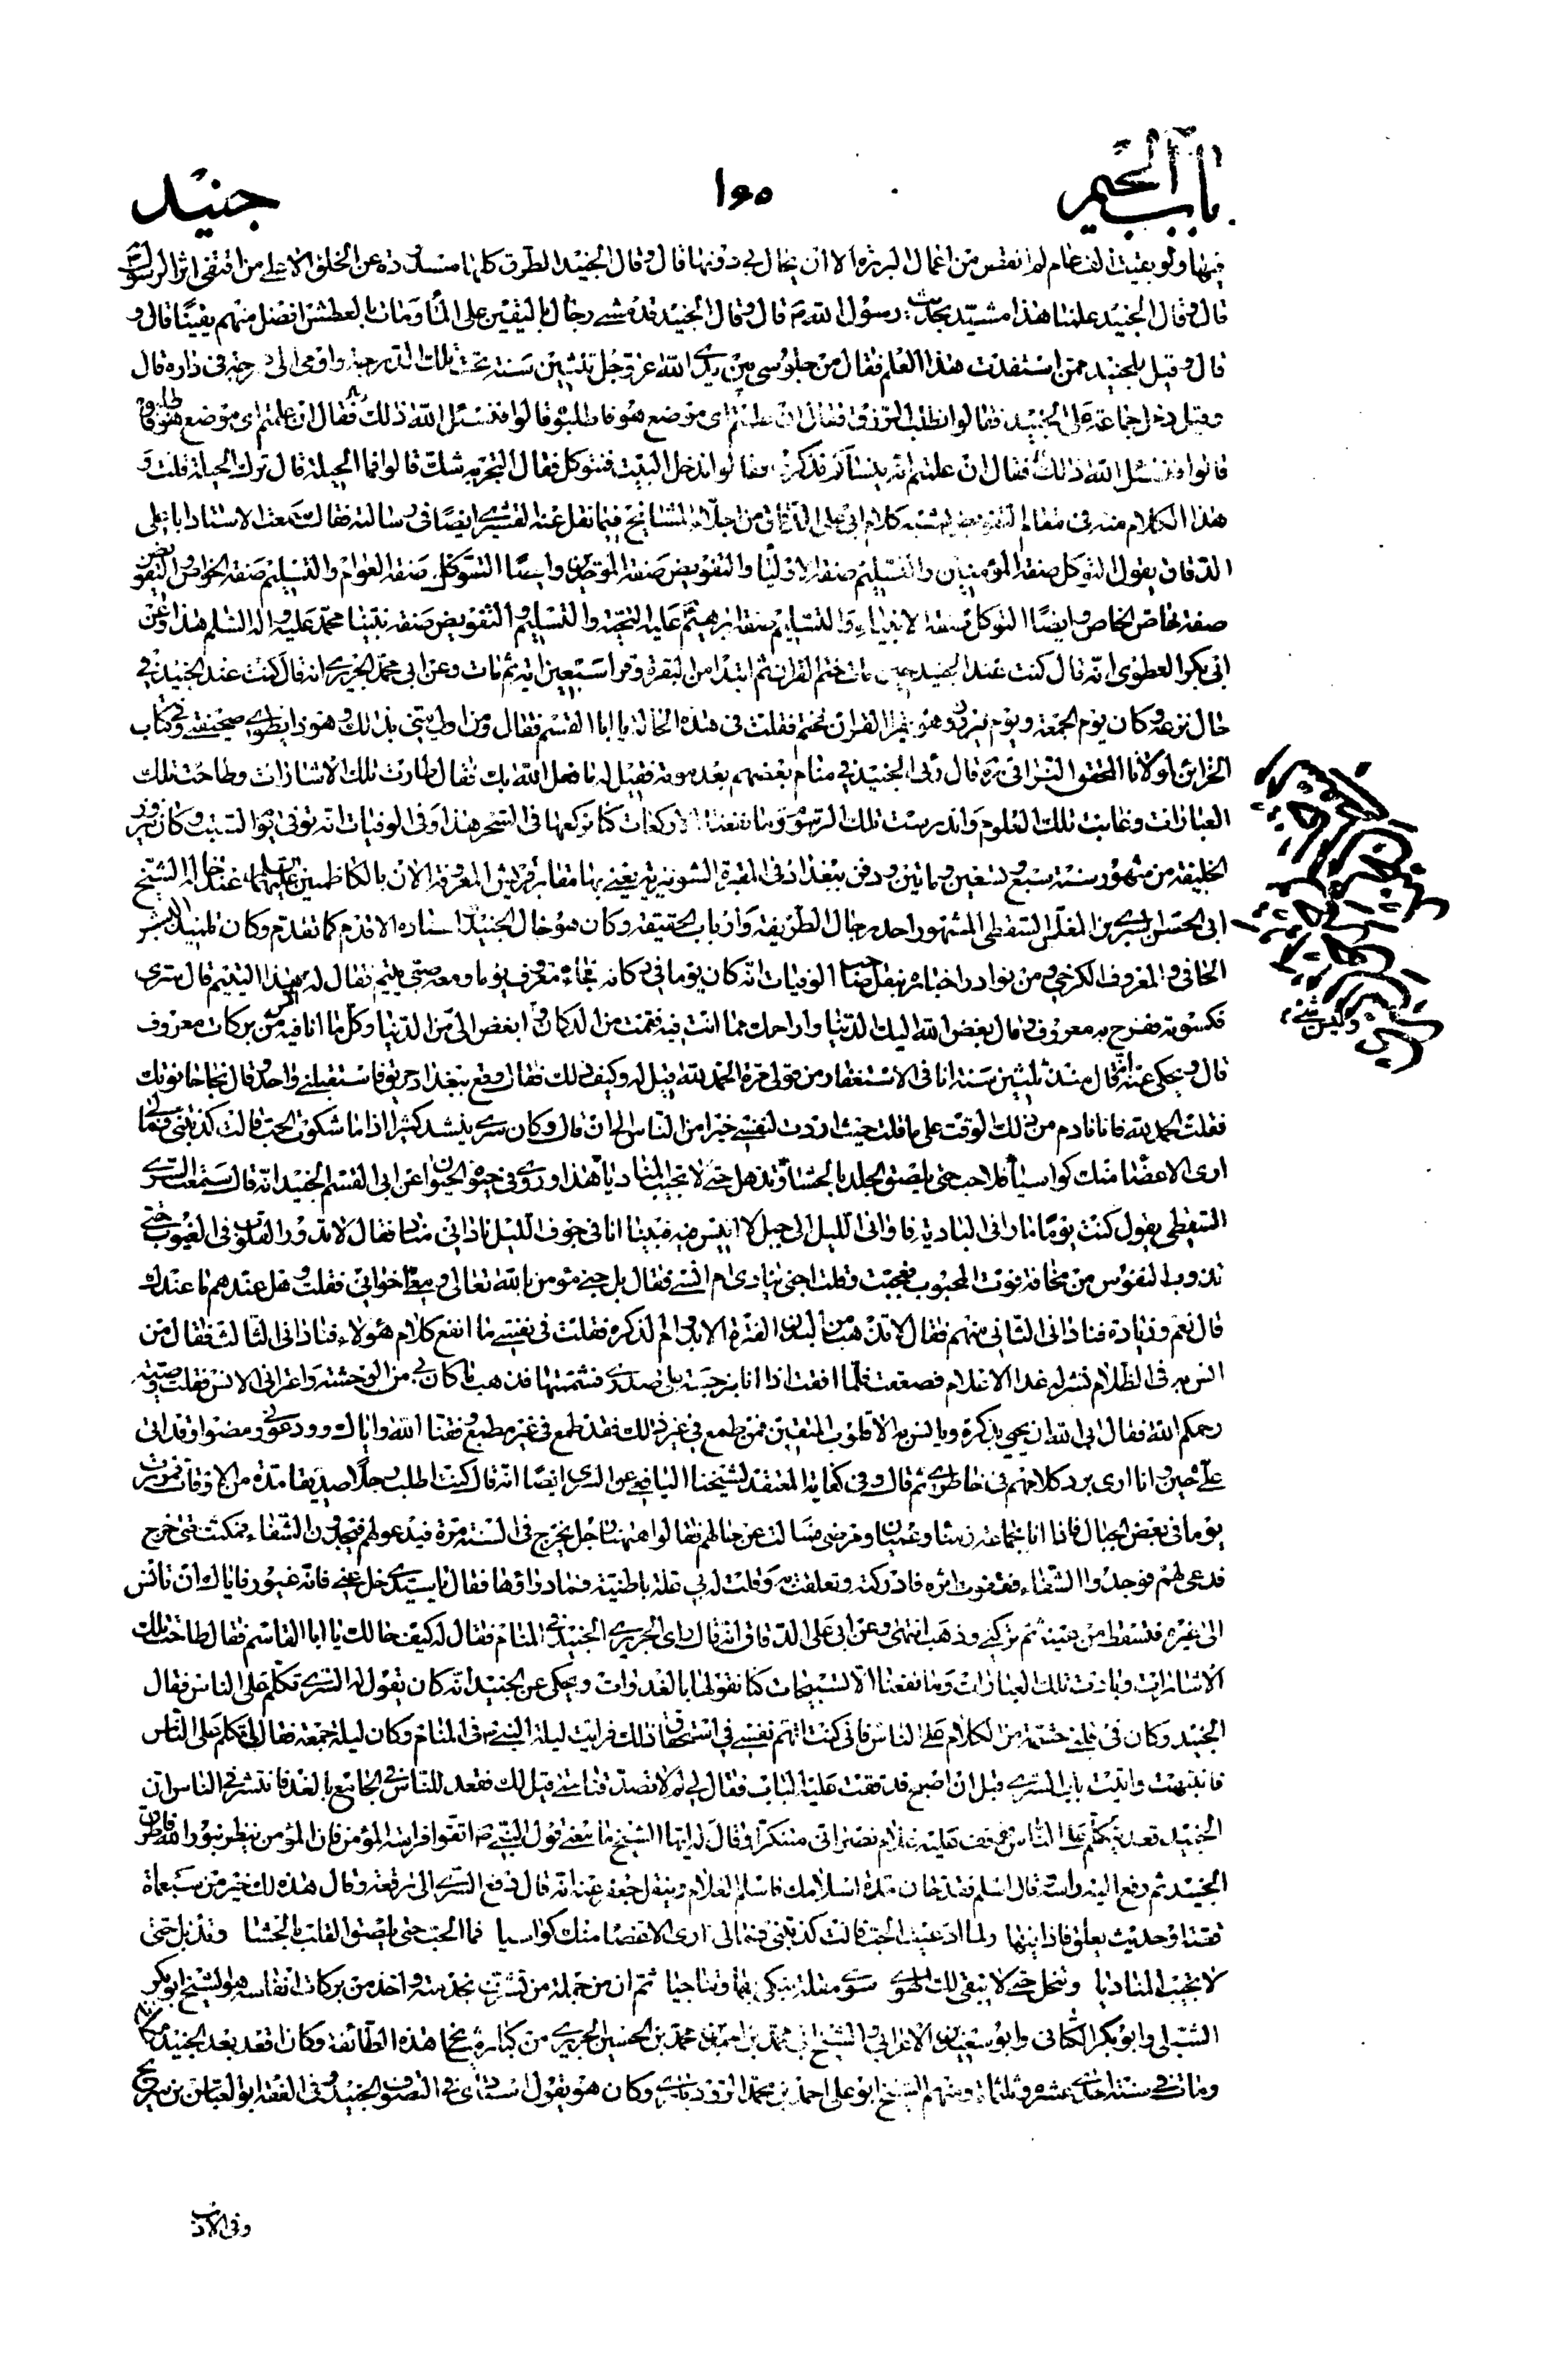 باب الجيم
١٥٥
جنيد
فيها ولو بقيت الف عام لم انقص من اعمال البر ذرة الا ان يحال بي دونها قال وقال الجنيد الطرق كلها مسدودة عن الخلق الا على من اقتفى اثر الرسول
قال وقال الجنيد علمنا هذا مشيد بحديث رسول الله ص قال وقال الجنيد قد مشى رجال باليقين على الماء ومات بالعطش افضل منهم يقينا قال و
قال وقيل للجنيد ممن استفدت هذا العلم فقال من جلوسى بين يدى الله عز وجل ثلثين سنة تحت تلك الدرجة واومى الى درجة فى داره قال
وقيل دخل جماعة على الجنيد فقالوا نطلب الرزق فقال ان علمتم اى موضع هو فاطلبوه قالوا فنسئل الله ذلك فقال ان علمتم اى موضع هو
قالوا فنسئل الله ذلك فقال ان علمتم انه ينساكم فذكروه فقالوا ندخل البيت فنتوكل فقال التجربة شك قالوا فما الحيلة قال ترك الحيلة قلت و
هذا الكلام منه فى مقام التفويض يشبه كلام ابى على الدقاق من اجلاء المشايخ فيما نقل عنه القشيرى ايضا فى رسالته فقال سمعت الاستاد ابا على
الدقاق يقول التوكل صفة المؤمنين والتسليم صفة الاولياء والتفويض صفة الموحدين وايضا التوكل صفة العوام والتسليم صفة الخواص والتفويض
صفة خاص الخاص وايضا التوكل صفة الانبياء والتسليم صفة ابرهيم عليه التحية والتسليم والتفويض صفة نبينا محمد عليه واله السلم هذا وعن
ابى بكر العطوى انه قال كنت عند الجنيد حين مات ختم القران ثم ابتدا من البقرة وقرا سبعين اية ثم مات وعن ابى محمد الجريرى انه قال كنت عند الجنيد فى
حال نزعه وكان يوم الجمعة ويوم نيروز وهو يقرا القران فختم فقلت فى هذه الحالة يا ابا القسم فقال ومن اولى منى بذلك وهو ذا يطوى صحيفتى وفى كتاب
الخزائن لمولانا المحقق النراقى ره قال رئى الجنيد فى منام بعضهم بعد موته فقيل له ما فعل الله بك فقال طارت تلك الاشارات وطاحت تلك
العبارات وغابت تلك العلوم واندرست تلك الرسوم وما نفعنا الا ركعات كنا نركعها فى السحر هذا وفى الوفيات انه توفى يوم السبت وكان نيروز
الخليفة من شهور سنة سبع وتسعين ومأتين ودفن ببغداد فى المقبرة الشونيزية يعنى بها مقابر قريش المعروفة الان بالكاظمين عليهما السلم عند خاله الشيخ
ابى الحسن السرى بن المغلس السقطى المشهور احد رجال الطريقة وارباب الحقيقة وكان هو خال الجنيد استاده الاقدم كما تقدم وكان تلميذا لبشر
الحافى والمعروف الكرخى ومن نوادر اخباره بنقل صاحب الوفيات انه كان يوما فى دكانه فجاءه معروف يوما ومعه صبى يتيم فقال له اكس هذا اليتيم قال سرى
فكسوته ففرح به معروف وقال بغض الله اليك الدنيا واراحك مما انت فيه فقمت من الدكان وما شئ ابغض الى من الدنيا وكل ما انا فيه من بركات معروف
قال ويحكى عنه انه قال منذ ثلثين سنة انا فى الاستغفار من قولى مرة الحمد لله قيل له وكيف ذلك فقال وقع ببغداد حريق فاستقبلنى واحد وقال نجا حانوتك
فقلت الحمد لله فانا نادم من ذلك الوقت على ما قلت حيث اردت لنفسى خيرا من الناس الى ان قال وكان سرى ينشد كثيرا اذا ما شكوت الحب قالت كذبتنى فما لى
ارى الاعضا منك كواسيا فلا حب حتى يلصق الجلد بالحشا وتذهل حتى لا تجيب المناديا هذا وروى فى حيوة الحيوان عن ابى القسم الجنيد انه قال سمعت السرى
السقطى يقول كنت يوما مارا فى البادية فاوانى الليل الى جبل لا انيس فيه فبينا انا فى جوف الليل نادانى مناد فقال لا تدور القلوب فى الغيوب حتى
تذوب النفوس من مخافة فوت المحبوب فعجبت وقلت اجنى ينادى ام انسى فقال بل جنى مؤمن بالله تعالى ومعى اخوانى فقلت وهل عندهم ما عندك
قال نعم وزيادة فنادانى الثانى منهم فقال لا تذهب من البدن الفترة الا بدوام الذكرة فقلت فى نفسى ما انفع كلام هؤلاء فنادانى الثالث فقال من
انس به فى الظلام نشر له غدا الاعلام فصعقت فلما افقت اذا انا بنرجسة على صدرى فشممتها فذهب ما كان بى من الوحشة واعترانى الانس فقلت وصية
رحمكم الله فقال ابى الله ان يحيى بذكره ويانس به الا قلوب المتقين فمن طمع فى غير ذلك فقد طمع فى غير مطمع وفقنا الله واياك وودعونى ومضوا وقد اتى
على حين وانا ارى برد كلامهم فى خاطرى ثم قال وفى كفاية المعتقد لشيخنا اليافعى عن السرى ايضا انه قال كنت اطلب رجلا صديقا مدة من الاوقات فمررت
يوما فى بعض الجبال فاذا انا بجماعة زمنا وعميان ومرضى فسالت عن حالهم فقالوا ههنا رجل يخرج فى السنة مرة فيدعو لهم فيجدون الشفاء فمكثت حتى خرج
فدعى لهم فوجدوا الشفاء فقفوت اثره فادركته وتعلقت به وقلت له بى علة باطنية فما دواؤها فقال يا سرى خل عنى فانه غيور فاياك ان تانس
الى غيره فتسقط من عينه ثم تركنى وذهب انتهى وعن ابى على الدقاق انه قال راى الجريرى الجنيد فى المنام فقال له كيف حالك يا ابا القاسم فقال طاحت تلك
الاشارات وبادت تلك العبارات وما نفعنا الا تسبيحات كنا نقولها بالغدوات ويحكى عن الجنيد انه كان يقول له السرى تكلم على الناس فقال
الجنيد وكان فى قلبى حشمة من الكلام على الناس فانى كنت اتهم نفسى فى استحقاق ذلك فرايت ليلة النبى ص فى المنام وكان ليلة جمعة فقال لى تكلم على الناس
فانتبهت واتيت باب السرى قبل ان اصبح فدققت عليه الباب فقال لى لم لا تصدقنا حتى قيل لك فقعد للناس فى الجامع بالغد فانتشر فى الناس ان
الجنيد قعد يتكلم على الناس فوقف عليه غلام نصرانى متنكرا وقال له ايها الشيخ ما معنى قول النبى ص اتقوا فراسة المؤمن فان المؤمن ينظر بنور الله فاطرق
الجنيد ثم رفع اليه راسه قال اسلم فقد حان مدة اسلامك فاسلم الغلام وبنقل جعفر عنه انه قال دفع السرى الى رقعة وقال هذه لك خير من سبعمأة
قصة او حديث بعلو فاذا فيها ولما ادعيت الحب قالت كذبتنى فما لى ارى الاعضا منك كواسيا فما الحب حتى يلصق القلب بالحشا وتذبل حتى
لا تجيب المناديا وتنحل حتى لا يبقى لك الهوى سوى مقلة تبكى بها وتناجيا ثم ان من جملة من تشرف بخدمته واخذ من بركات انفاسه هو الشيخ ابو بكر
الشبلى وابو بكر الكتانى وابو سعيد بن الاعرابى والشيخ ابى محمد بن احمد بن محمد بن الحسين الجريرى من كبار مشايخ هذه الطائفة وكان اقعد بعد الجنيد مكانه
ومات فى سنة احدى عشرة وثلثمأة ومنهم الشيخ ابو على احمد بن محمد الرودبارى وكان هو يقول استادى فى التصوف الجنيد وفى الفقه ابو العباس بن سريج
وفى الادب